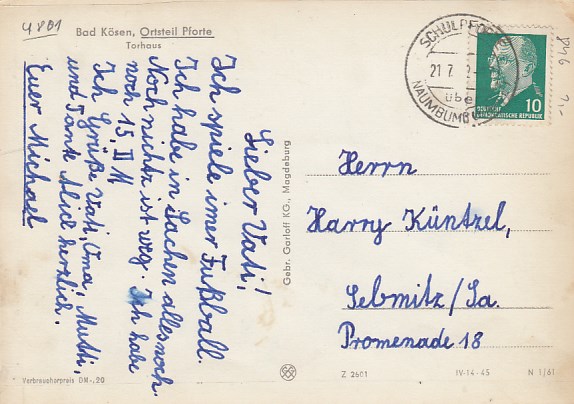 4801
Bad Kösen, Ortsteil Pforte
Torhaus
Lieber Vati!
Ich spiele imer Fußball.
Ich habe in Sachen alles noch.
Noch nichts ist weg. Ich habe
noch 15. II M
Ich Grüße Vati, Oma, Mutti,
und Tank Alick herzlich.
Euer Michael
Verbraucherpreis DM -,20
Gebr. Garloff KG., Magdeburg
SCHULPFORTE
21.7.
über
NAUMBURG
DEUTSCHE
DEMOKRATISCHE REPUBLIK
10
Herrn
Harry Küntzel,
Sebnitz/Sa.
Promenade 18
Z 2601
IV-14-45
N 1/61